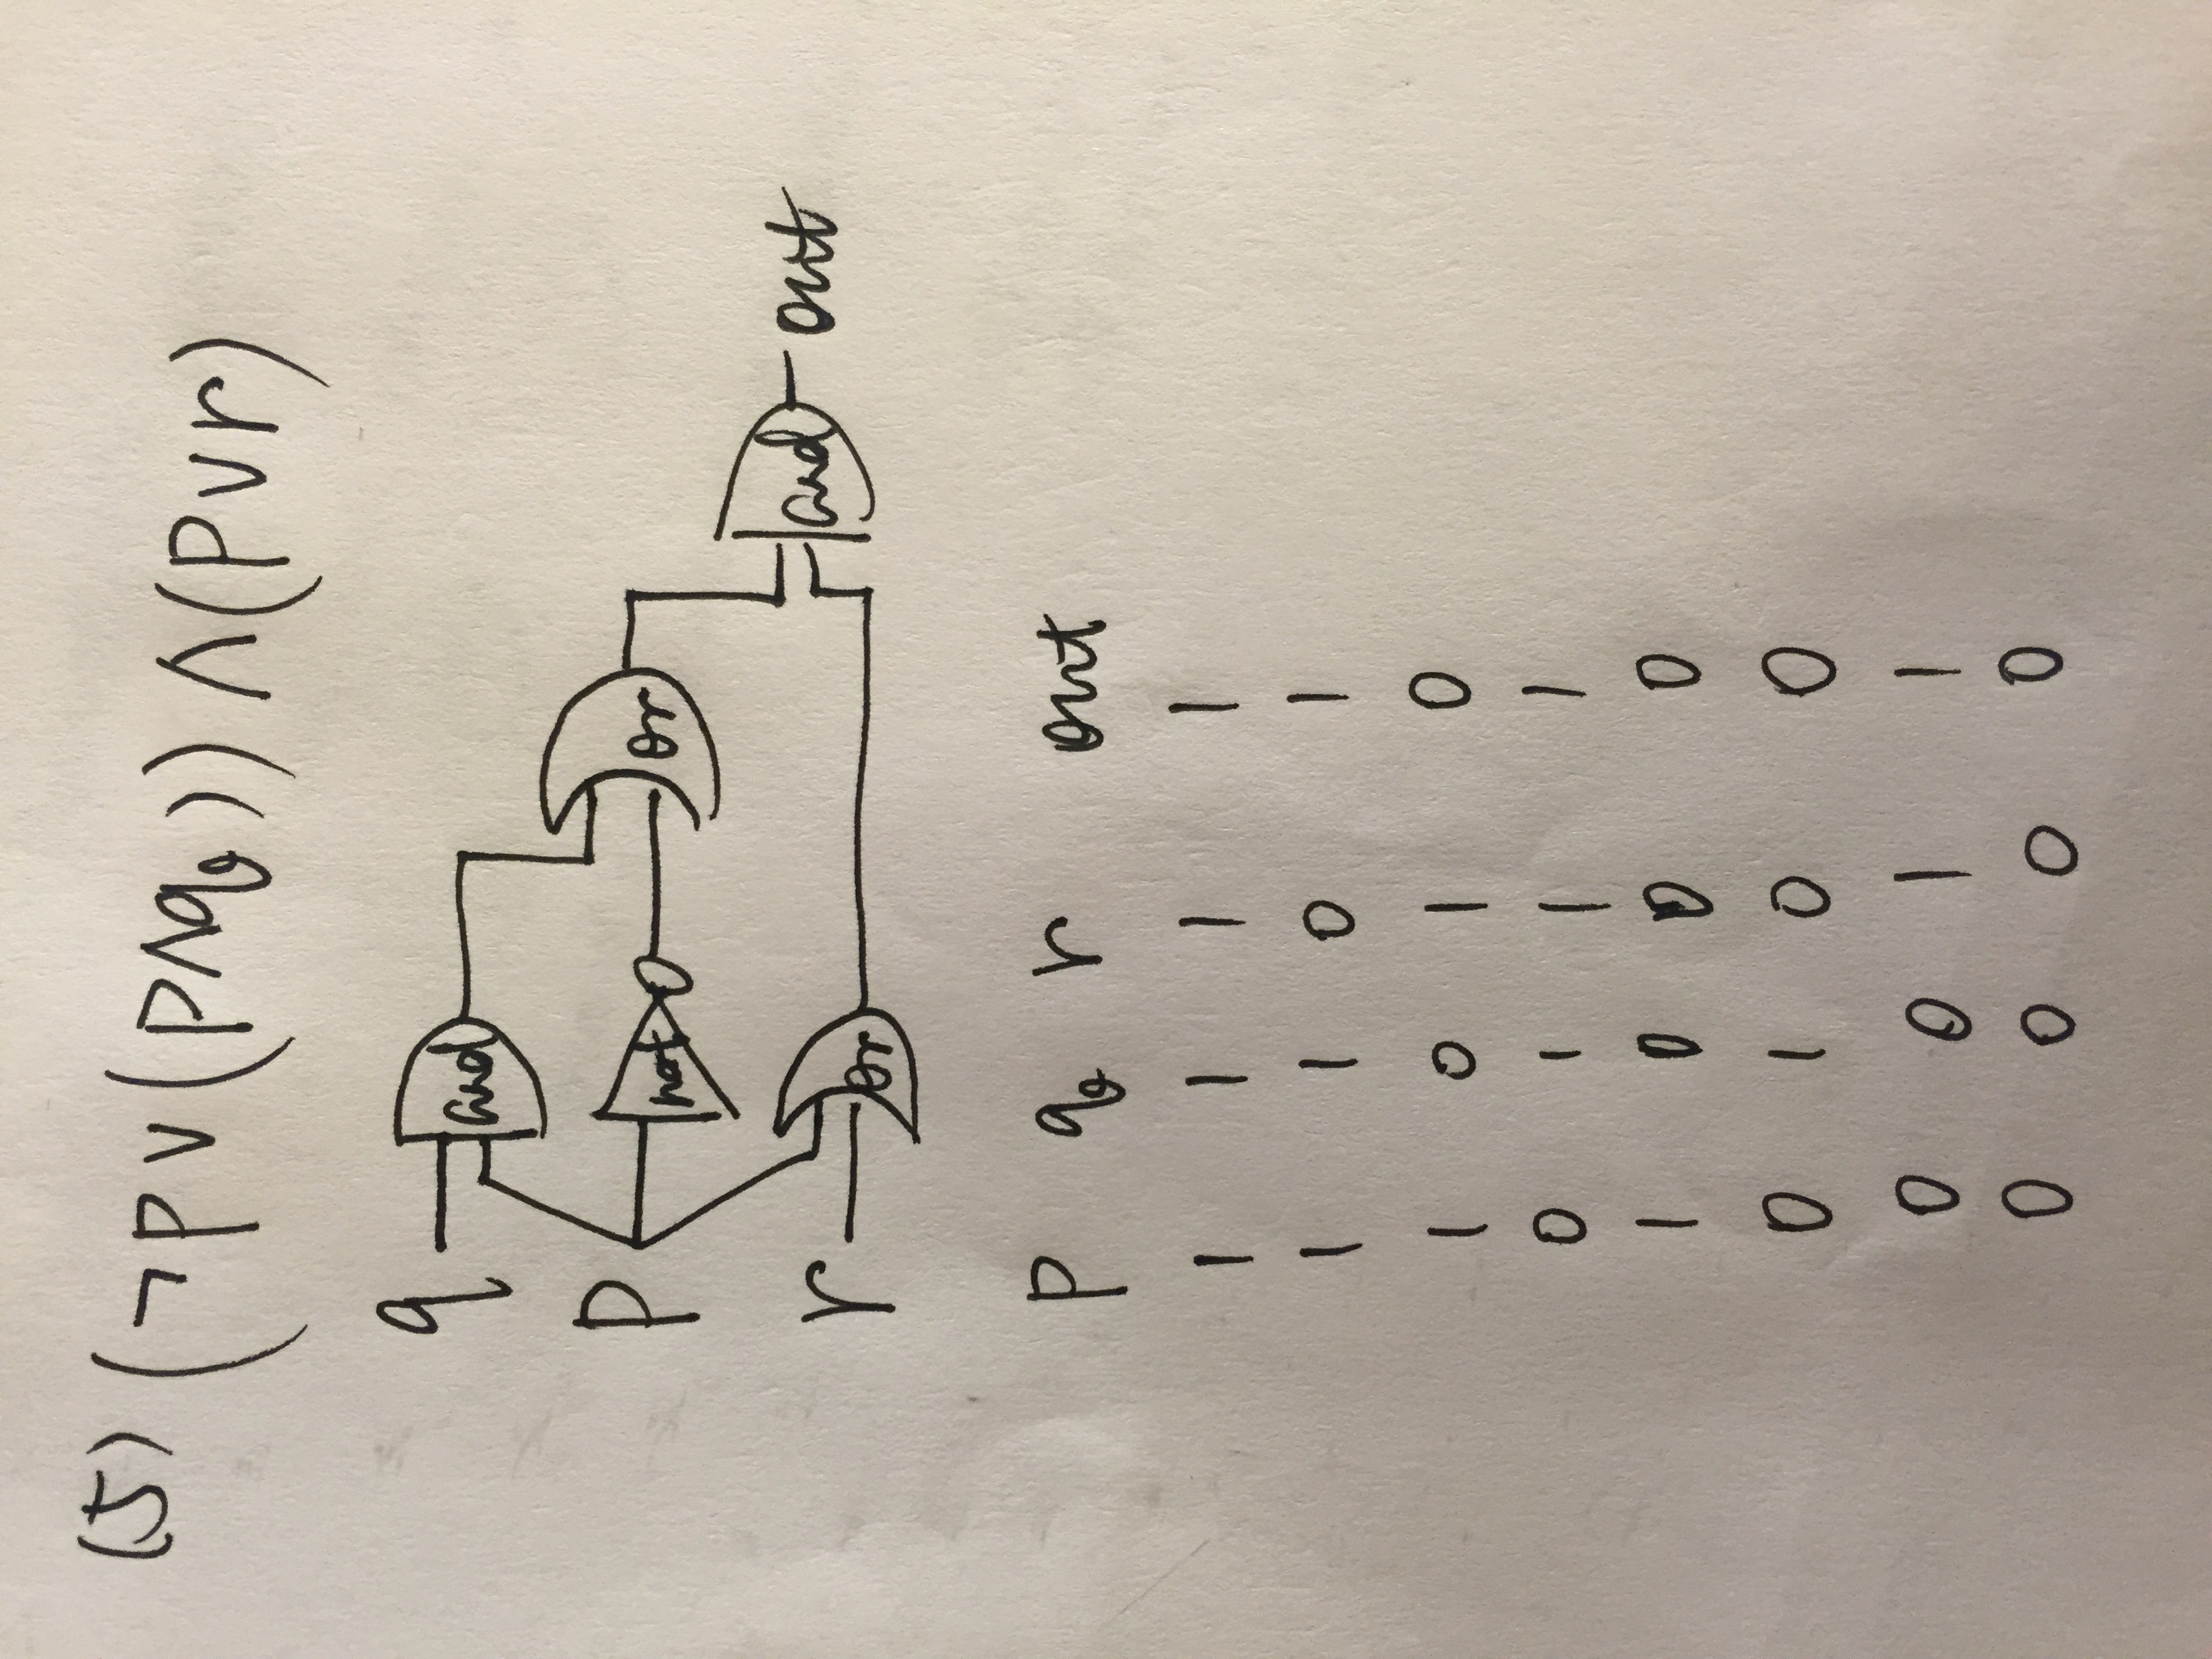 (5) (¬p∨(p∧q))∧(p∨r)
q and
p not or
r or and out
p q r out
1 1 1 1
1 1 0 1
1 0 1 0
0 1 1 1
1 0 0 0
0 1 0 0
0 0 1 1
0 0 0 0